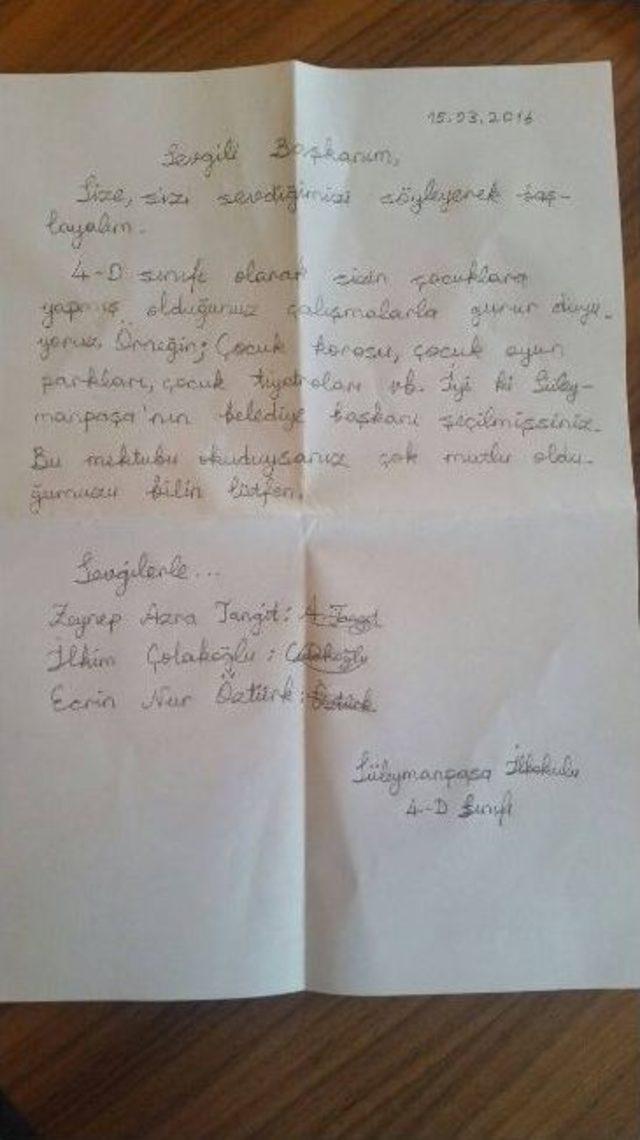 15.03.2016
Sevgili Başkanım,
Size, sizi sevdiğimizi söyleyerek baş-
layalım.
4-D sınıfı olarak sizin çocuklara
yapmış olduğunuz çalışmalarla gurur duyu-
yoruz. Örneğin; Çocuk korosu, çocuk oyun
parkları, çocuk tiyatroları vb. İyi ki Süley-
manpaşa'nın belediye başkanı seçilmişsiniz.
Bu mektubu okuduysanız çok mutlu oldu-
ğumuzu bilin lütfen.
Sevgilerle...
Zeynep Azra Tangit: A. Tangit
İlkim Çolakoğlu: Çolakoğlu
Ecrin Nur Öztürk: Öztürk
Süleymanpaşa İlkokulu
4-D Sınıfı